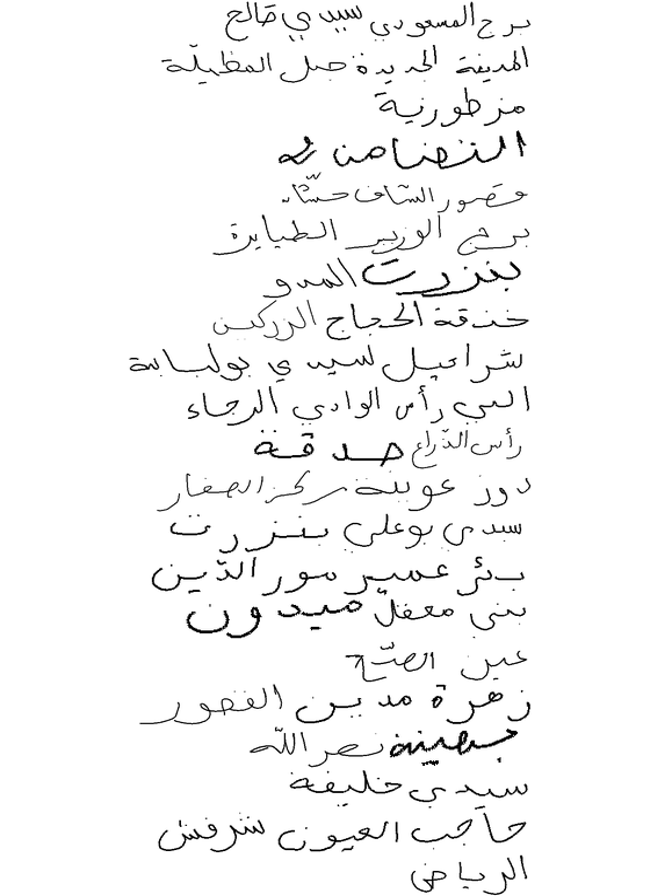 برج المسعودي سيدي صالح
المدينة الجديدة جبل المظيلّة
مزطورية
التضامن
قصور السّاف حشّاد
برج الوزير الطيايرة
بنزرت
خنقة الحجاج الزركين
شراعيل لسيدي بولبابة
البي رأس الوادي الرجاء
رأس الذّراع صدقة
دوز عوينة مركز الصفار
سيدي بوعلي بنزرت
بئر عمير نور الدّين
بني معقل ميدون
عين الصّبح
زهرة مدين القصور
جهينة نصر اللّه
سيدي خليفة
حاجب العيون شرفش
الرياض